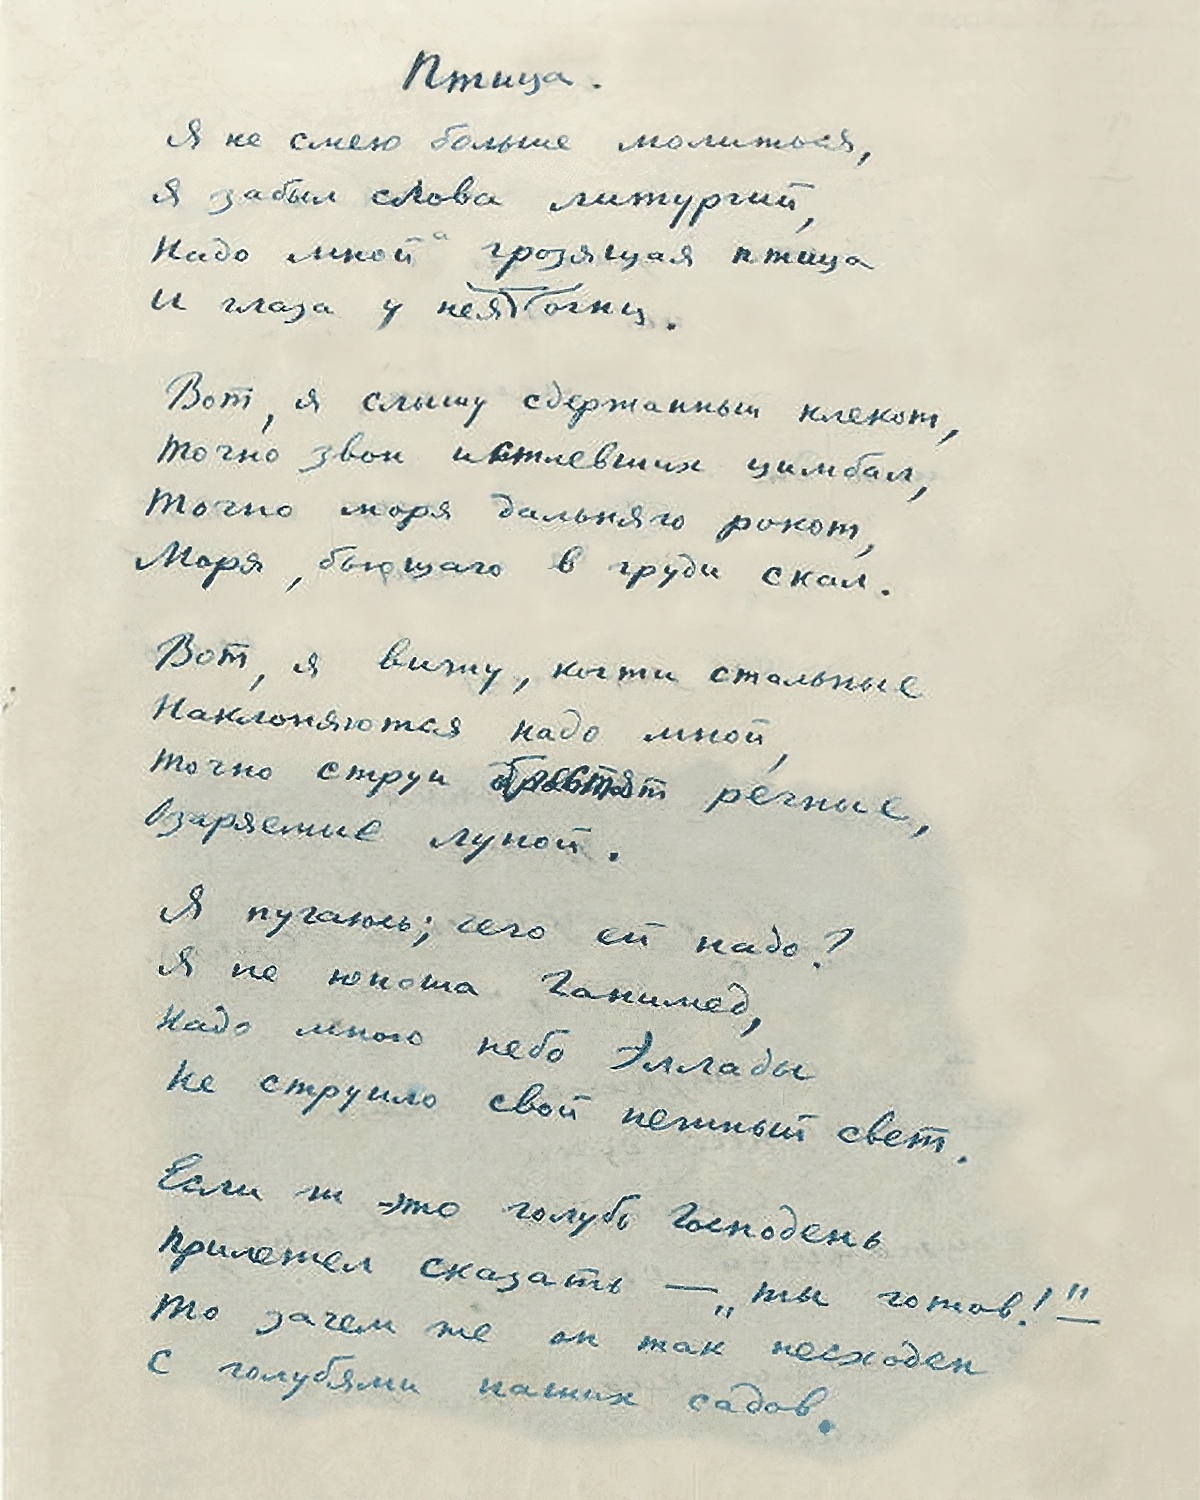 Птица.
Я не смею больше молиться,
Я забыл слова литургий,
Надо мной грозящая птица
И глаза у нея огни.
Вот, я слышу сдержанный клекот,
Точно звон истлевших цимбал,
Точно моря дальняго рокот,
Моря, бьющаго в груди скал.
Вот, я вижу, когти стальные
Наклоняются надо мной,
Точно струи речные,
Озаряемые луной.
Я пугаюсь; чего ей надо?
Я не юноша Ганимед,
Надо мною небо Эллады
Не струило свой нежный свет.
Если ж это голубь Господень
Прилетел сказать — „ты готов!" —
То зачем же он так несходен
С голубями наших садов.